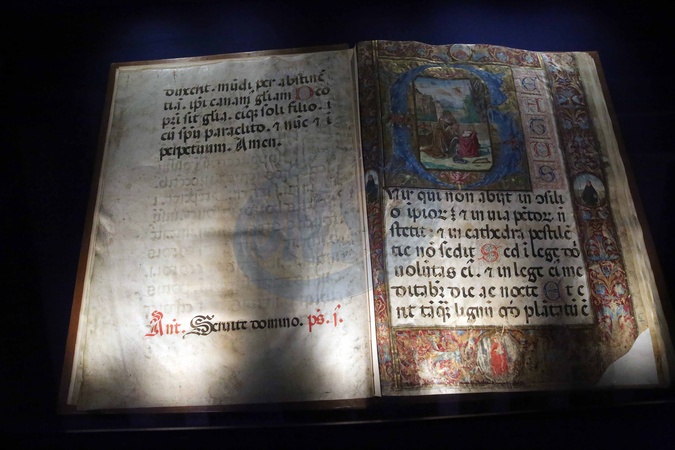 mūdi per abstinē
tiā. ipi canam gliam Deo
pri sit glia. eiqz soli filio. i
cū spū paraclito. & nūc & i
perpetuum. Amen.
Ant. Servite domino. ps. j.
B
E
A
T
U
S
vir qui non abijt in cōsili
o ipiorz & in via pctor. n̄
stetit: & in cathedra pestilē
tie nō sedit Sed i lege dō
volūtas ei. & in lege ei me
ditabr die ac nocte Et e
rit tāqz lignū qd platatū ē